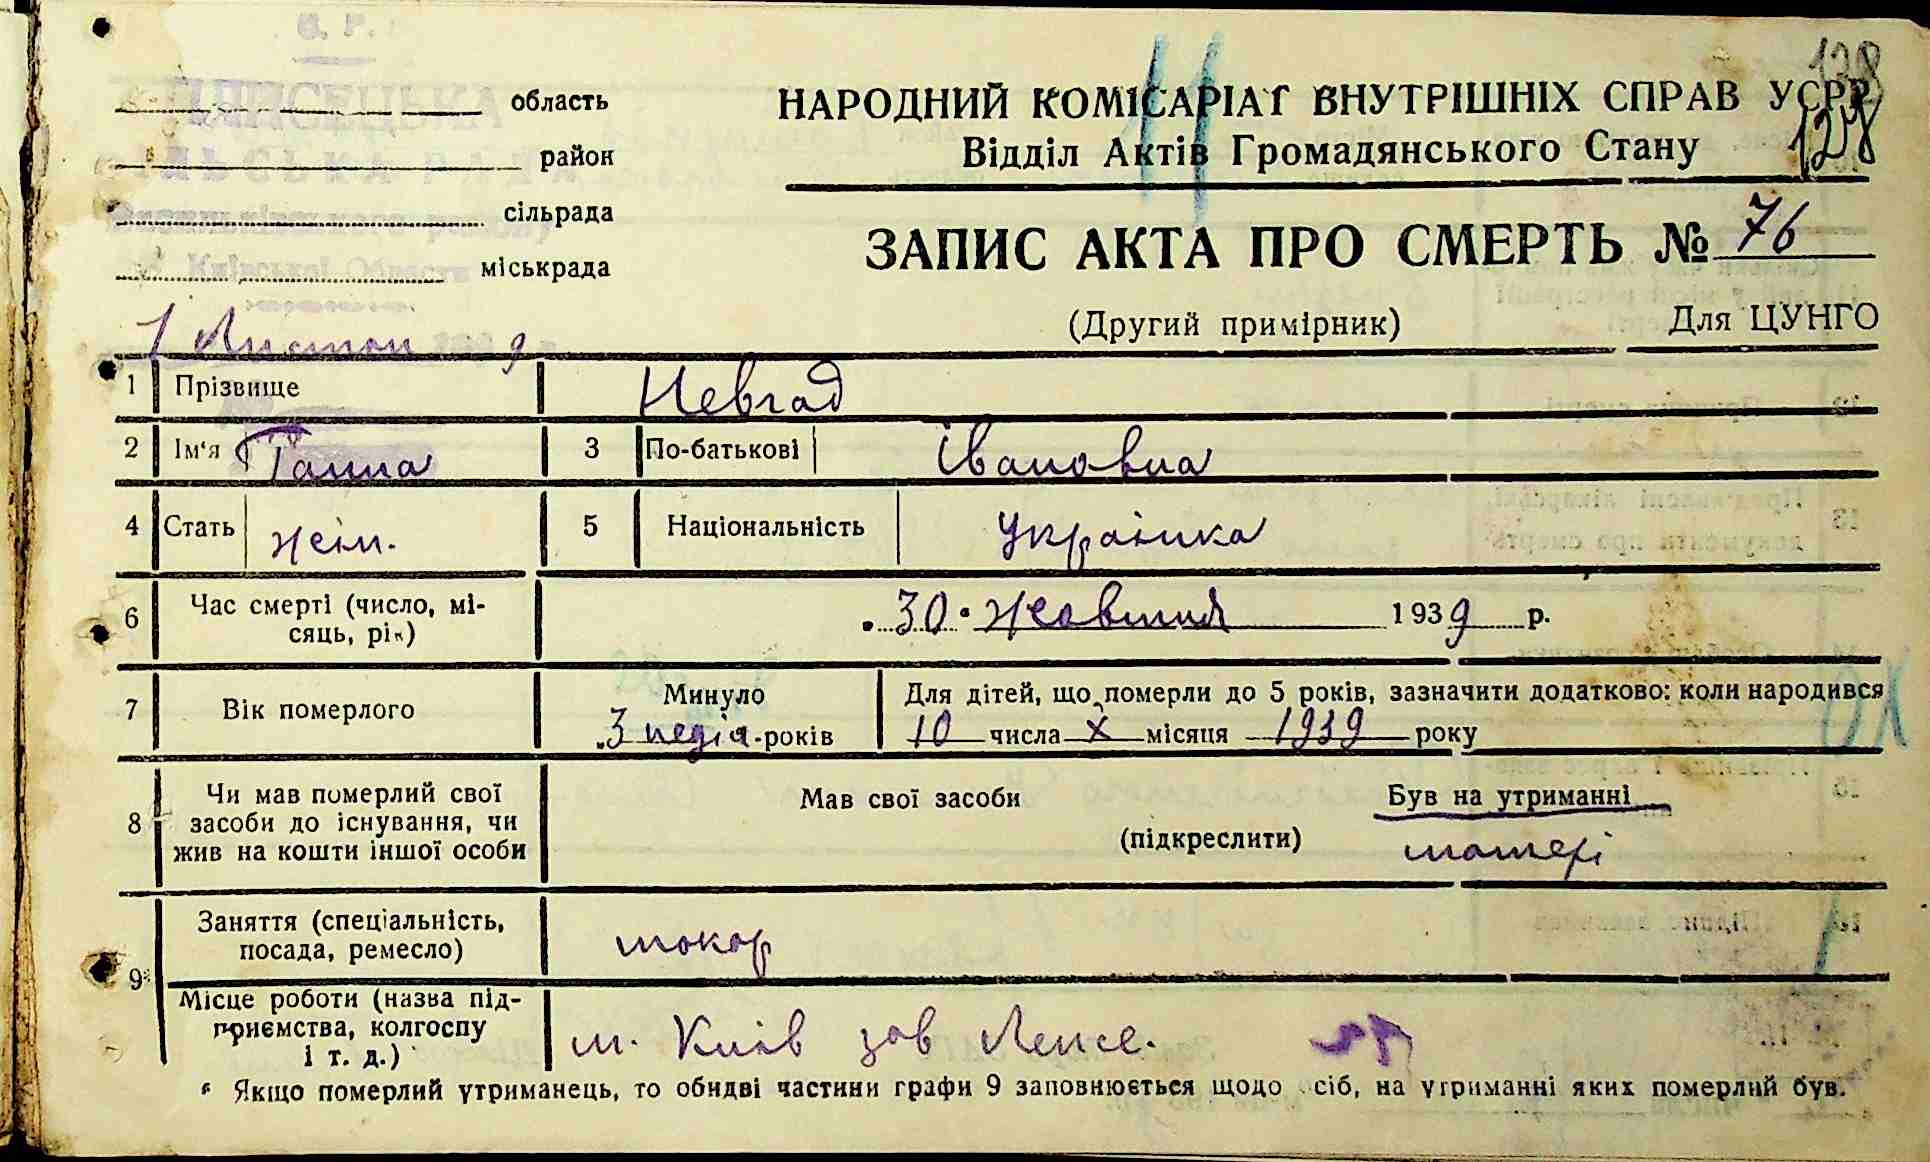 В. Р.
ПЛИСЕЦЬКА
СІЛЬСЬКА РАДА
Васильківського району
Київської Області
область
район
сільрада
міськрада
1 Листоп 1939 р.
138
128
НАРОДНИЙ КОМІСАРІАТ ВНУТРІШНІХ СПРАВ УСРР
Відділ Актів Громадянського Стану
11
ЗАПИС АКТА ПРО СМЕРТЬ № 76
(Другий примірник) Для ЦУНГО
1 Прізвище Невгад
2 Ім'я Ганна 3 По-батькові Івановна
4 Стать жін. 5 Національність Українка
6 Час смерті (число, мі-
сяць, рік) 30 Жовтня 1939 р.
7 Вік померлого Минуло 3 неділ-років
Для дітей, що померли до 5 років, зазначити додатково: коли народився
10 числа X місяця 1939 року
8 Чи мав померлий свої
засоби до існування, чи
жив на кошти іншої особи
Мав свої засоби Був на утриманні
(підкреслити) матері
9* Заняття (спеціальність,
посада, ремесло) токар
Місце роботи (назва під-
приємства, колгоспу
і т. д.) м. Київ зав Лепсе.
* Якщо померлий утриманець, то обидві частини графи 9 заповнюється щодо осіб, на утриманні яких померлий був.